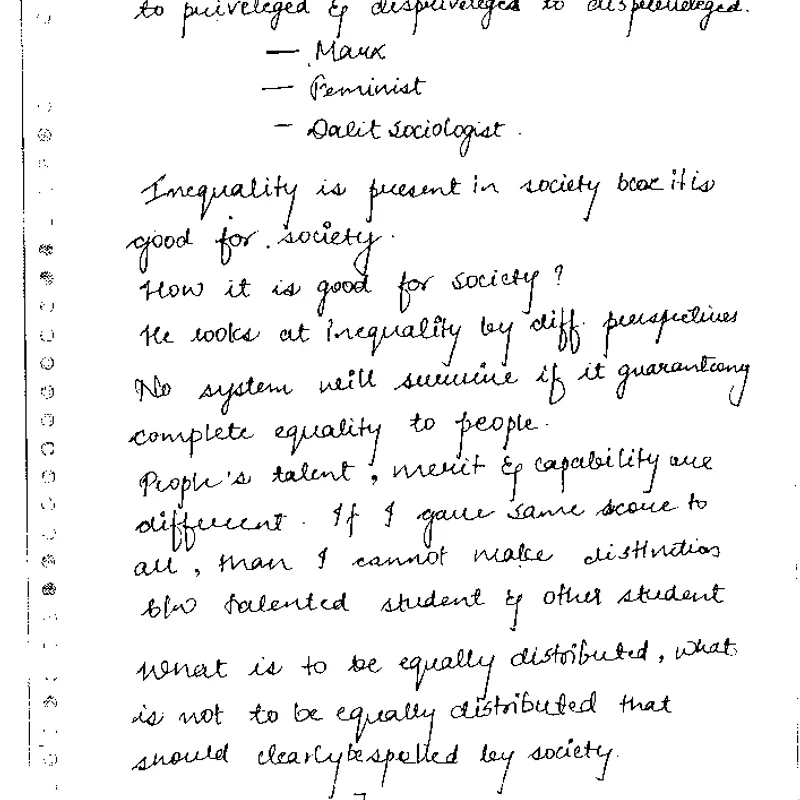 to priveleged & dispriveleges to dispriveleged.
— Marx
— Feminist
– Dalit sociologist.
Inequality is present in society bcoz it is
good for society.
How it is good for society?
He looks at Inequality by diff. perspectives
No system will survive if it guaranteeing
complete equality to people.
People's talent, merit & capability are
different. If I gave same score to
all, than I cannot make distinction
b/w talented student & other student
What is to be equally distributed, what
is not to be equally distributed that
should clearly be spelled by society.